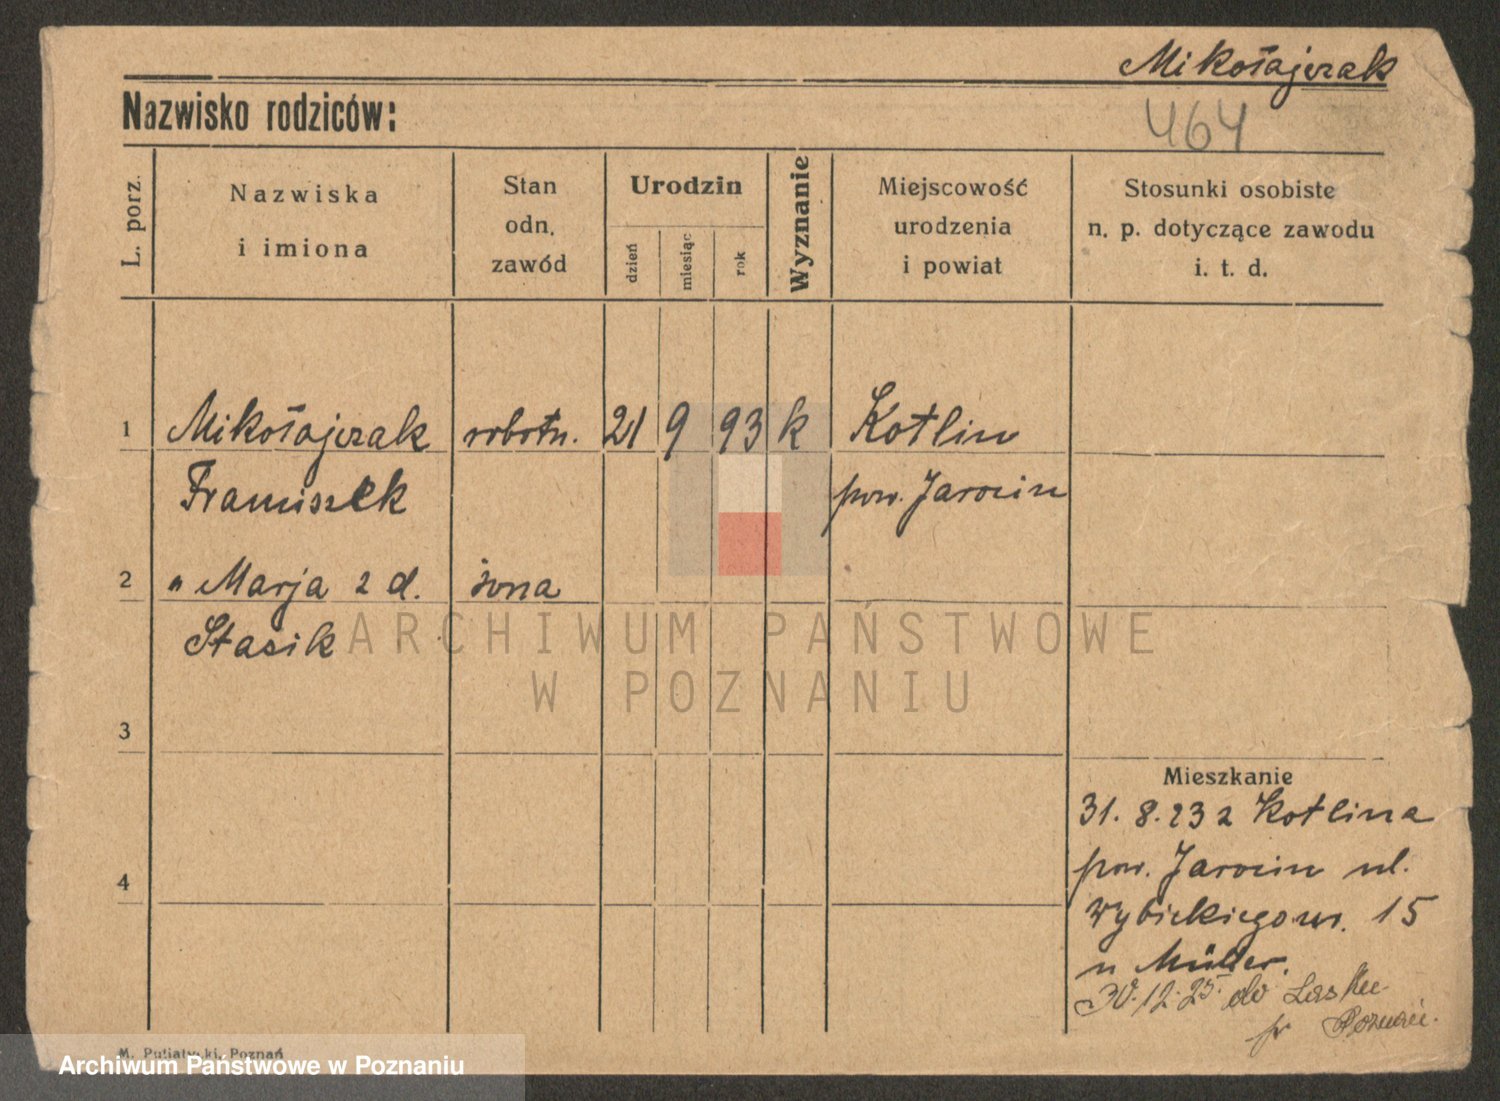 Mikołajczak
464
Nazwisko rodziców:
L. porz.
Nazwiska
i imiona
Stan
odn.
zawód
Urodzin
dzień
miesiąc
rok
Wyznanie
Miejscowość
urodzenia
i powiat
Stosunki osobiste
n. p. dotyczące zawodu
i. t. d.
1 Mikołajczak robotn. 21 9 93 k Kotlin
Franciszek pow. Jarocin
2 " Marja z d. żona
Stasik
ARCHIWUM PAŃSTWOWE
W POZNANIU
3
Mieszkanie
31. 8. 23 z Kotlina
pow. Jarocin ul.
4
Wybickiego nr. 15
u Müller.
30.12.25. do Lasku
p. Poznań.
M. Putiatycki, Poznań
Archiwum Państwowe w Poznaniu